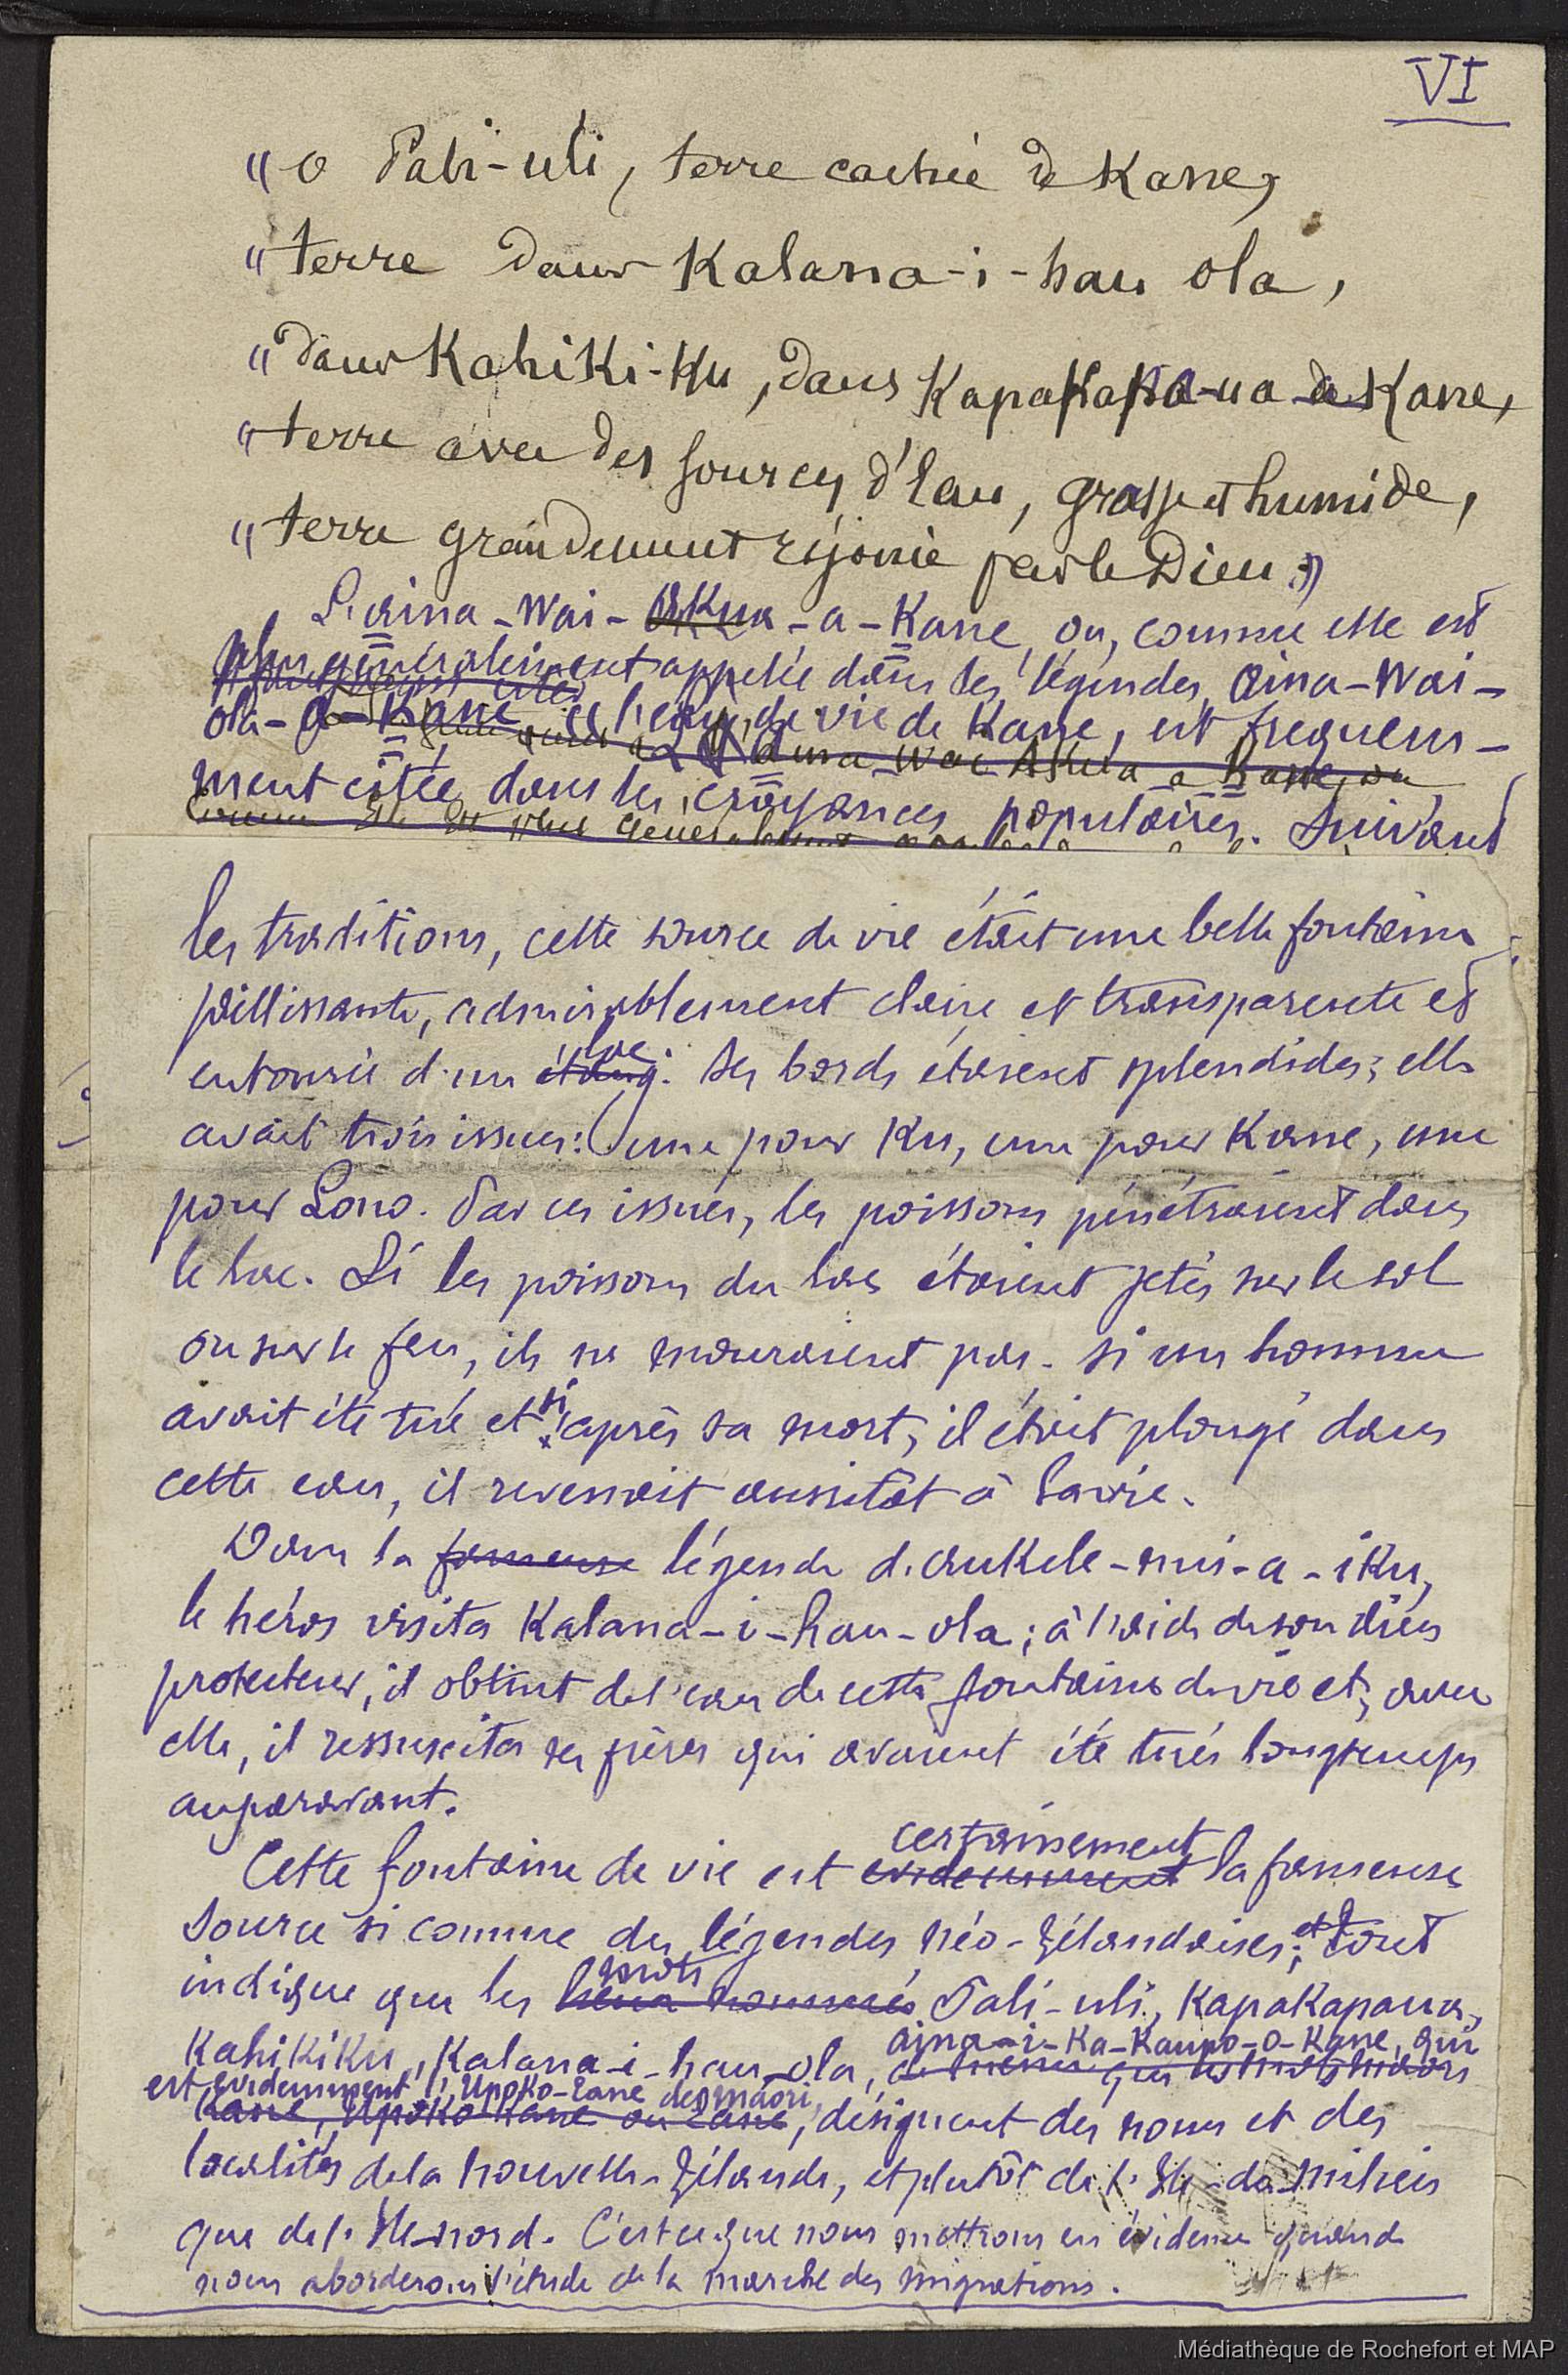 VI
"O Pali-uli, terre cachée de Kane,
"terre dans Kalana-i-hau ola,
"dans Kahiki-Ku, dans Kapakapa-ua a Kane,
"terre avec des sources d'eau, grasse et humide,
"terre grandement réjouie par le Dieu."
L'aina-Wai-Akua-a-Kane, ou, comme elle est
plus généralement appelée dans les légendes, Aina-Wai-
ola-a-Kane, l'eau de vie de Kane, est frequem-
ment citée dans les croyances populaires. Suivant
les traditions, cette source de vie était une belle fontaine
jaillissante, admirablement claire et transparente et
entourée d'un étang. lac. Ses bords étaient splendides; elle
avait trois issues: une pour Ku, une pour Kane, une
pour Lono. Par ces issues, les poissons pénétraient dans
le lac. Si les poissons du lac étaient jetés sur le sol
ou sur le feu, ils ne mouraient pas. Si un homme
avait été tué et si après sa mort, il était plongé dans
cette eau, il revenait aussitôt à la vie.
Dans la fameuse légende d'Aukele-nui-a-iku,
le héros visita Kalana-i-hau-ola; à l'aide de son dieu
protecteur, il obtint de l'eau de cette fontaine de vie et, avec
elle, il ressuscita ses frères qui avaient été tués longtemps
auparavant.
certainement
Cette fontaine de vie est evidemment la fameuse
source si connue des légendes néo-zélandaises; et tout
mots
indique que les lieux nommés Pali-uli, Kapakapaua,
aina-i-Ka-Kaupo-o-Kane, qui
Kahikiku, Kalana-i-hau-ola, de même que les mots maori
est evidemment l'Upoko-Tane des maori,
Kane, Upoko Kane ou Tane, désignent des noms et des
localités de la Nouvelle-Zélande, et plutôt de l'Ile-du-Milieu
que de l'Ile-nord. C'est ce que nous mettrons en évidence quand
nous aborderons l'étude de la marche des migrations.
Médiathèque de Rochefort et MAP